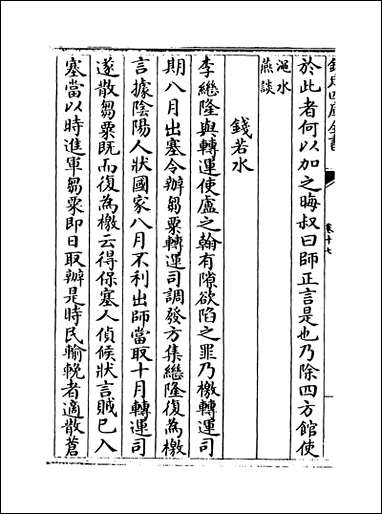 欽定四庫全書
卷十七
於此者何以加之晦叔曰師正言是也乃除四方館使
澠水
燕談
錢若水
李繼隆與轉運使盧之翰有隙欲陷之罪乃檄轉運司
期八月出塞令辦芻粟轉運司調發方集繼隆復為檄
言據陰陽人狀國家八月不利出師當取十月轉運司
遂散芻粟既而復為檄云得保塞人偵候狀言賊已入
塞當以時進軍芻粟即日取辦是時民輸輓者適散蒼